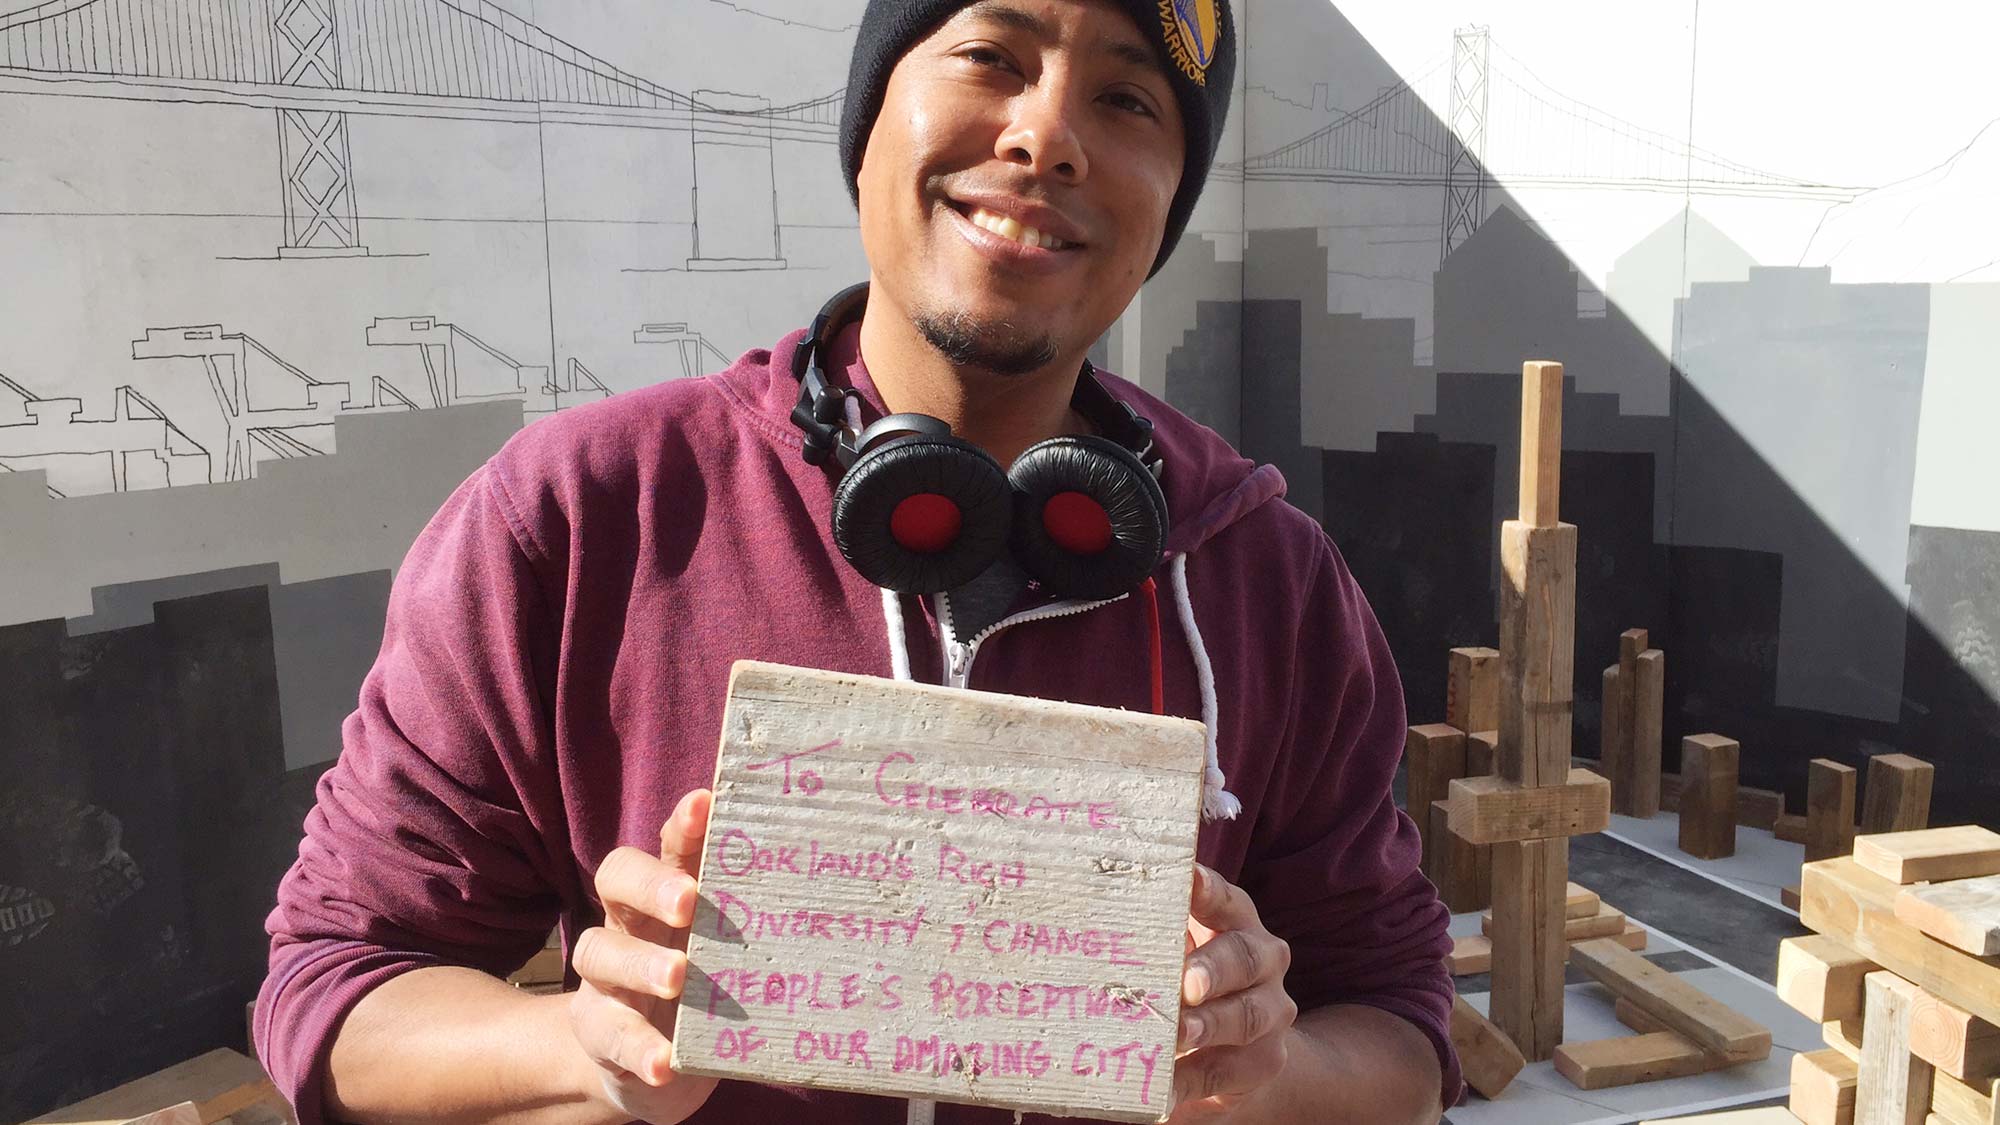 WARRIORS
To CELEBRATE
OAKLAND'S RICH
DIVERSITY ; CHANGE
PEOPLE'S PERCEPTIONS
OF OUR AMAZING CITY